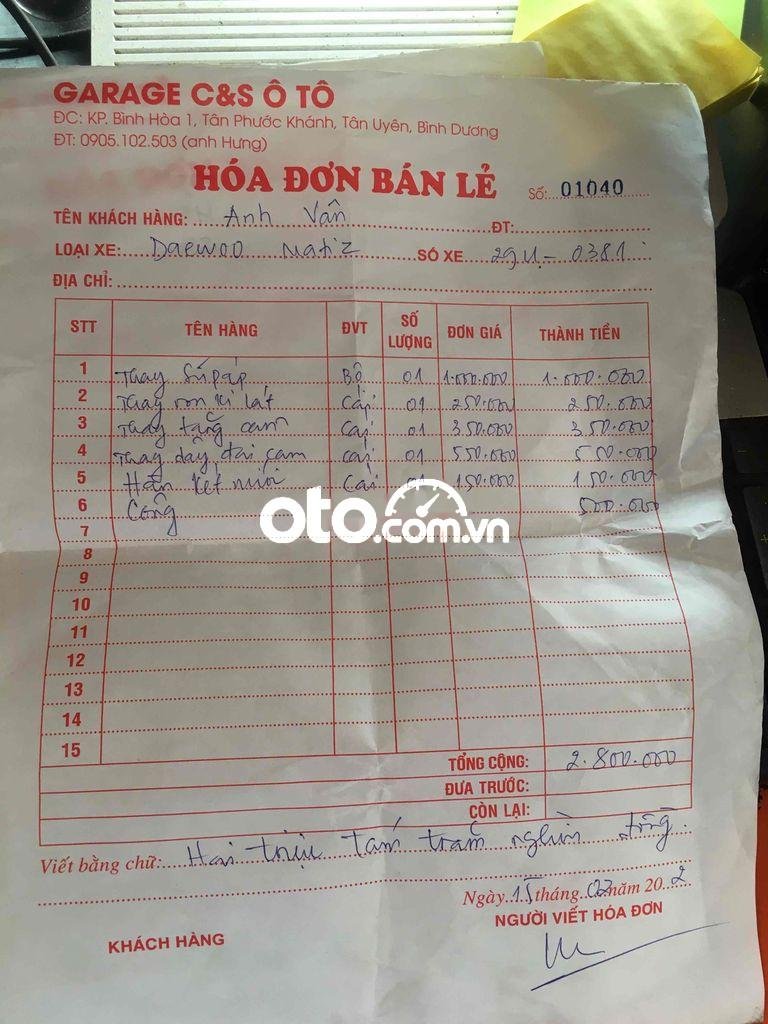 GARAGE C&S Ô TÔ
ĐC: KP. Bình Hòa 1, Tân Phước Khánh, Tân Uyên, Bình Dương
ĐT: 0905.102.503 (anh Hưng)
HÓA ĐƠN BÁN LẺ Số: 01040
TÊN KHÁCH HÀNG: Anh Vân ĐT:
LOẠI XE: Daewoo Matiz SỐ XE 29U - 0381
ĐỊA CHỈ:
STT TÊN HÀNG ĐVT SỐ LƯỢNG ĐƠN GIÁ THÀNH TIỀN
1 Thay Súpáp Bộ 01 1.000.000 1.000.000
2 Thay ron Cái 01 250.000 250.000
3 Thay tăng cam Cái 01 350.000 350.000
4 Thay dây đai cam Cái 01 550.000 550.000
5 Hàn két nước Cái 01 150.000 150.000
6 Công 500.000
7
8
9
10
11
12
13
14
15
TỔNG CỘNG: 2.800.000
ĐƯA TRƯỚC:
CÒN LẠI:
Viết bằng chữ: Hai triệu tám trăm nghìn đồng.
Ngày 15 tháng 02 năm 20 2
NGƯỜI VIẾT HÓA ĐƠN
KHÁCH HÀNG
oto.com.vn